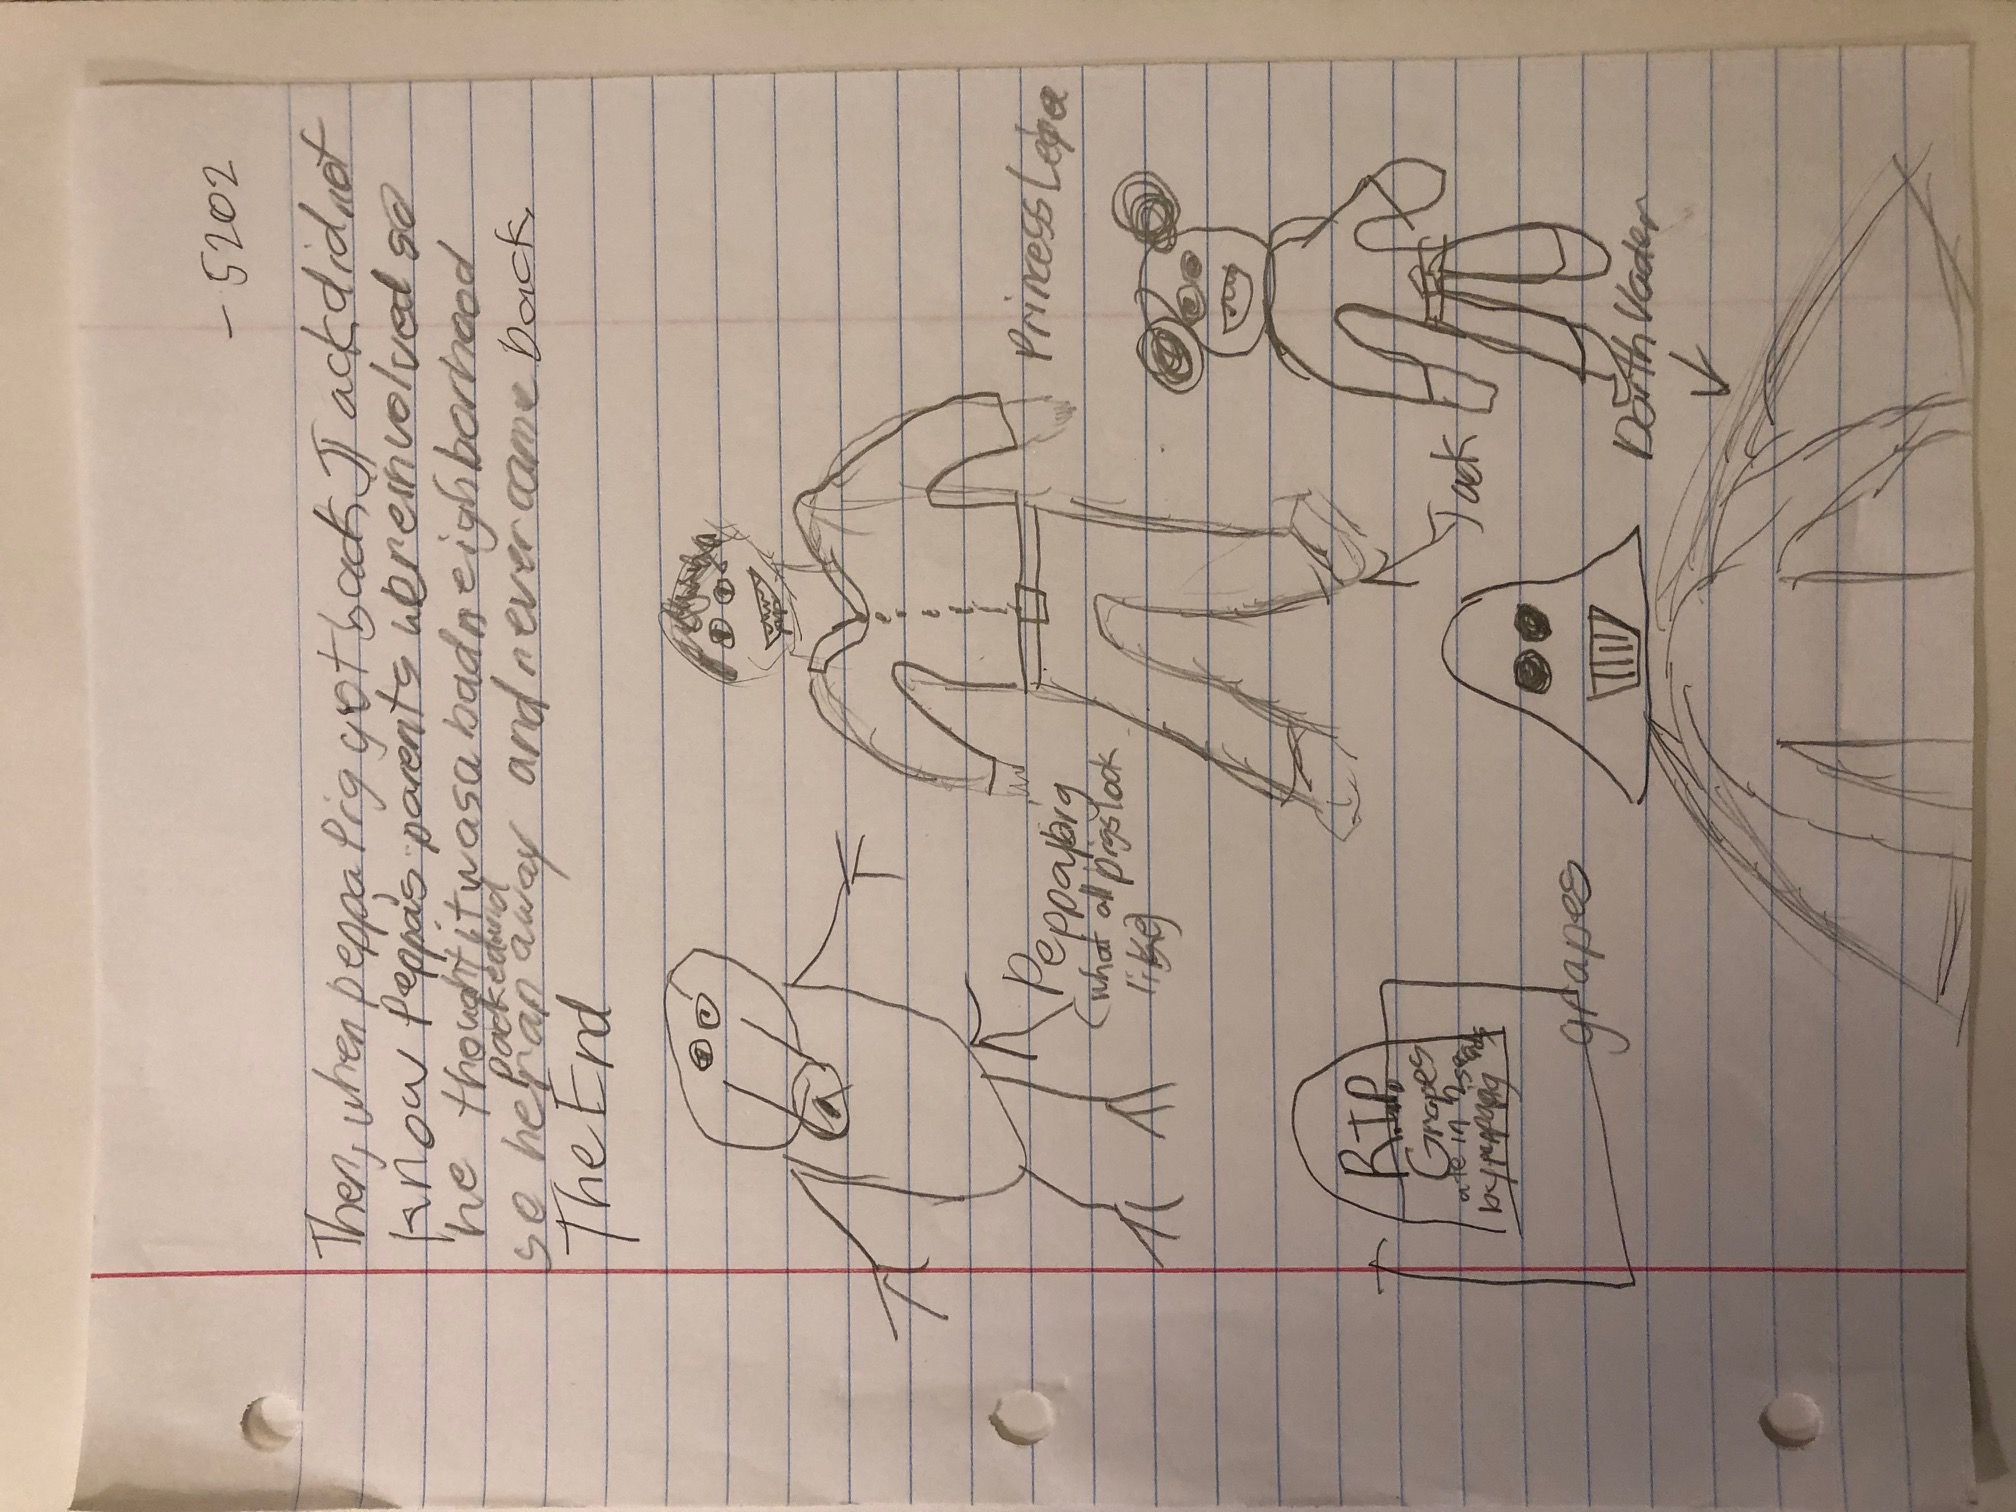 - 5202
Then, when peppa Pig got back, Jack did not
know Peppa's parents were involved so
he thought it was a bad neighborhood
packed and
so he ran away and never came back.
The End
Peppa pig
(what all pigs look
like)
Princess Leia
R.I.P.
Grapes
ate in 2 seconds
by peppa pig
grapes
Jack
Darth Vader